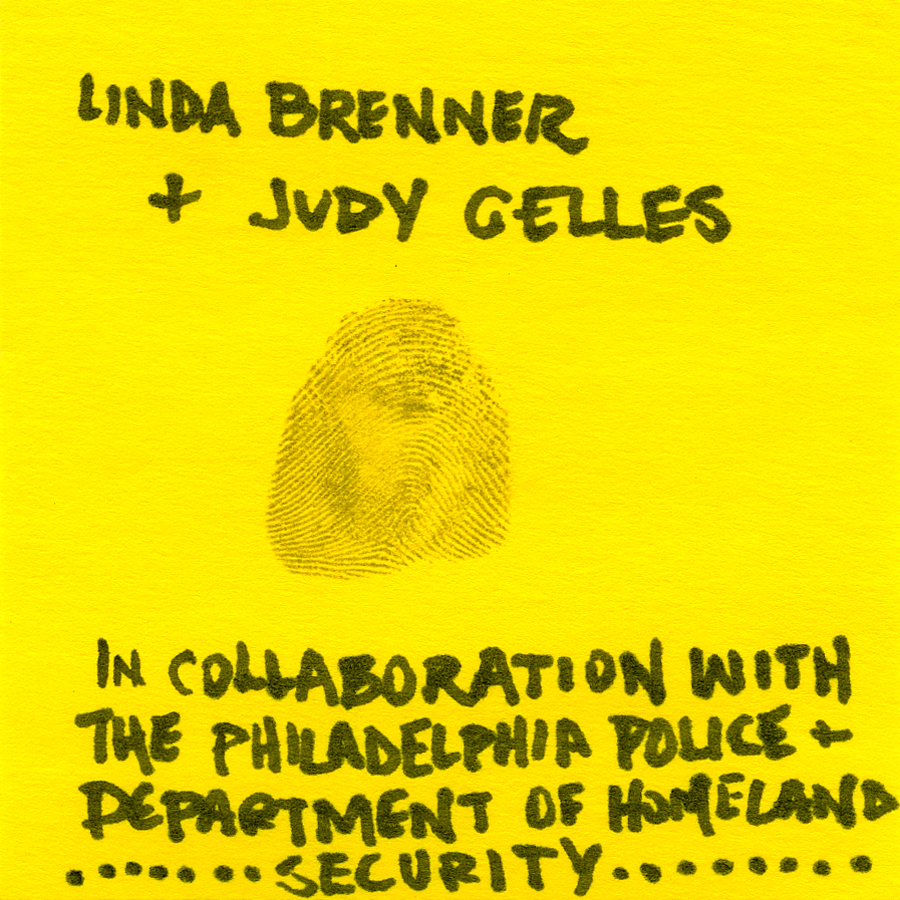 LINDA BRENNER
+ JUDY GELLES
IN COLLABORATION WITH
THE PHILADELPHIA POLICE +
DEPARTMENT OF HOMELAND
.......SECURITY........